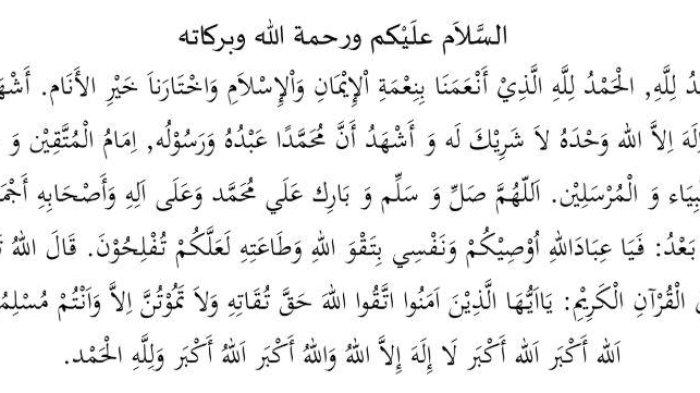 السَّلاَم علَيْكم ورحمة الله وبركاته
لِلَّهِ, الْحَمْدُ لِلَّهِ الَّذِيْ أَنْعَمَنَا بِنِعْمَةِ اْلإِيْمَانِ وَاْلإِسْلاَمِ وَاخْتَارَناَ خَيْرِ الأَنَام.
اِلاَّ الله وَحْدَهُ لاَ شَرِيْكَ لَه وَ أَشْهَدُ أَنَّ مُحَمَّدًا عَبْدُهُ وَرَسُوْلُه, اِمَامُ الْمُتَّقِيْن وَ
وَ الْمُرْسَلِيْن. اَللّهُمَّ صَلِّ وَ سَلِّم وَ بَارِك عَلَي مُحَمَّد وَعَلَى اَلِهِ وَأَصْحَابِهِ
بَعْدُ: فَيَا عِبَادَاللهِ اُوْصِيْكُمْ وَنَفْسِي بِتَقْوَ اللهِ وَطَاعَتِهِ لَعَلَّكُمْ تُفْلِحُوْنَ. قَالَ اللهُ
الْقُرْآنِ الْكَرِيْمِ: يَااَيُّهَا الَّذِيْنَ اَمَنُوا اتَّقُوا اللهَ حَقَّ تُقَاتِهِ وَلاَ تَمُوْتُنَّ اِلاَّ وَاَنْتُمْ
اَلله أَكْبَر اَلله أَكْبَر لَا إِلَهَ إِلاَّ اللهُ وَاللهُ أَكْبَر اَللهُ أَكْبَر وَلِلَّهِ الْحَمْد.